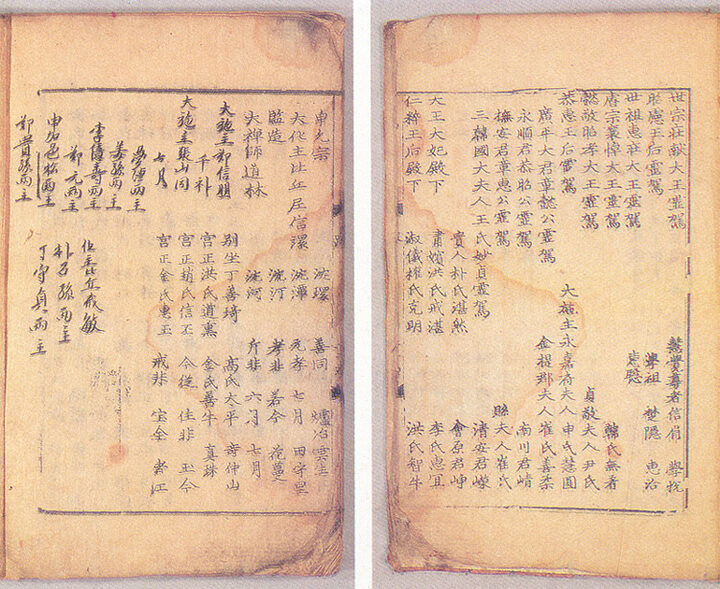 世宗莊獻大王靈駕 慧覺尊者信眉 學悅
昭憲王后靈駕 學祖 楚隱 惠治
世祖惠莊大王靈駕
睿宗襄悼大王靈駕 韓氏無着
懿敬昭孝大王靈駕 貞敬夫人尹氏
恭惠王后靈駕 大施主永嘉府夫人申氏慧圓
廣平大君章懿公靈駕 金提郡夫人崔氏善柔
永順君恭昭公靈駕 南川君崝
撫安君章惠公靈駕 縣夫人崔氏
三韓國大夫人王氏妙貞靈駕 清安君嶸
貴人朴氏湛然 會原君崢
大王大妃殿下 肅嬪洪氏戒湛 李氏惠宜
仁粹王后殿下 淑儀權氏克明 洪氏智牛
申允宗 洗環 善同 爐冶雲生
大化主比丘居信環 洗潭 元孝 七月 田守堅
監造 洗汀 孝非 若今 花蔓
大禪師道林 洗河 斤非 六月 七月
大施主鄭信朋 別坐丁善琦 高氏大平 奇仲山
千朴 宮正洪氏道熏 金氏善牛 真珠
大施主張山同 宮正趙氏信丕 今從 佳非 玉今
七月 宮正金氏惠玉 戒非 宝金
兩主
孫兩主
李 壽兩主 化主比丘戒敏
鄭元兩主 朴石孫兩主
申 松兩主 丁守貞兩主
鄭貴孫兩主